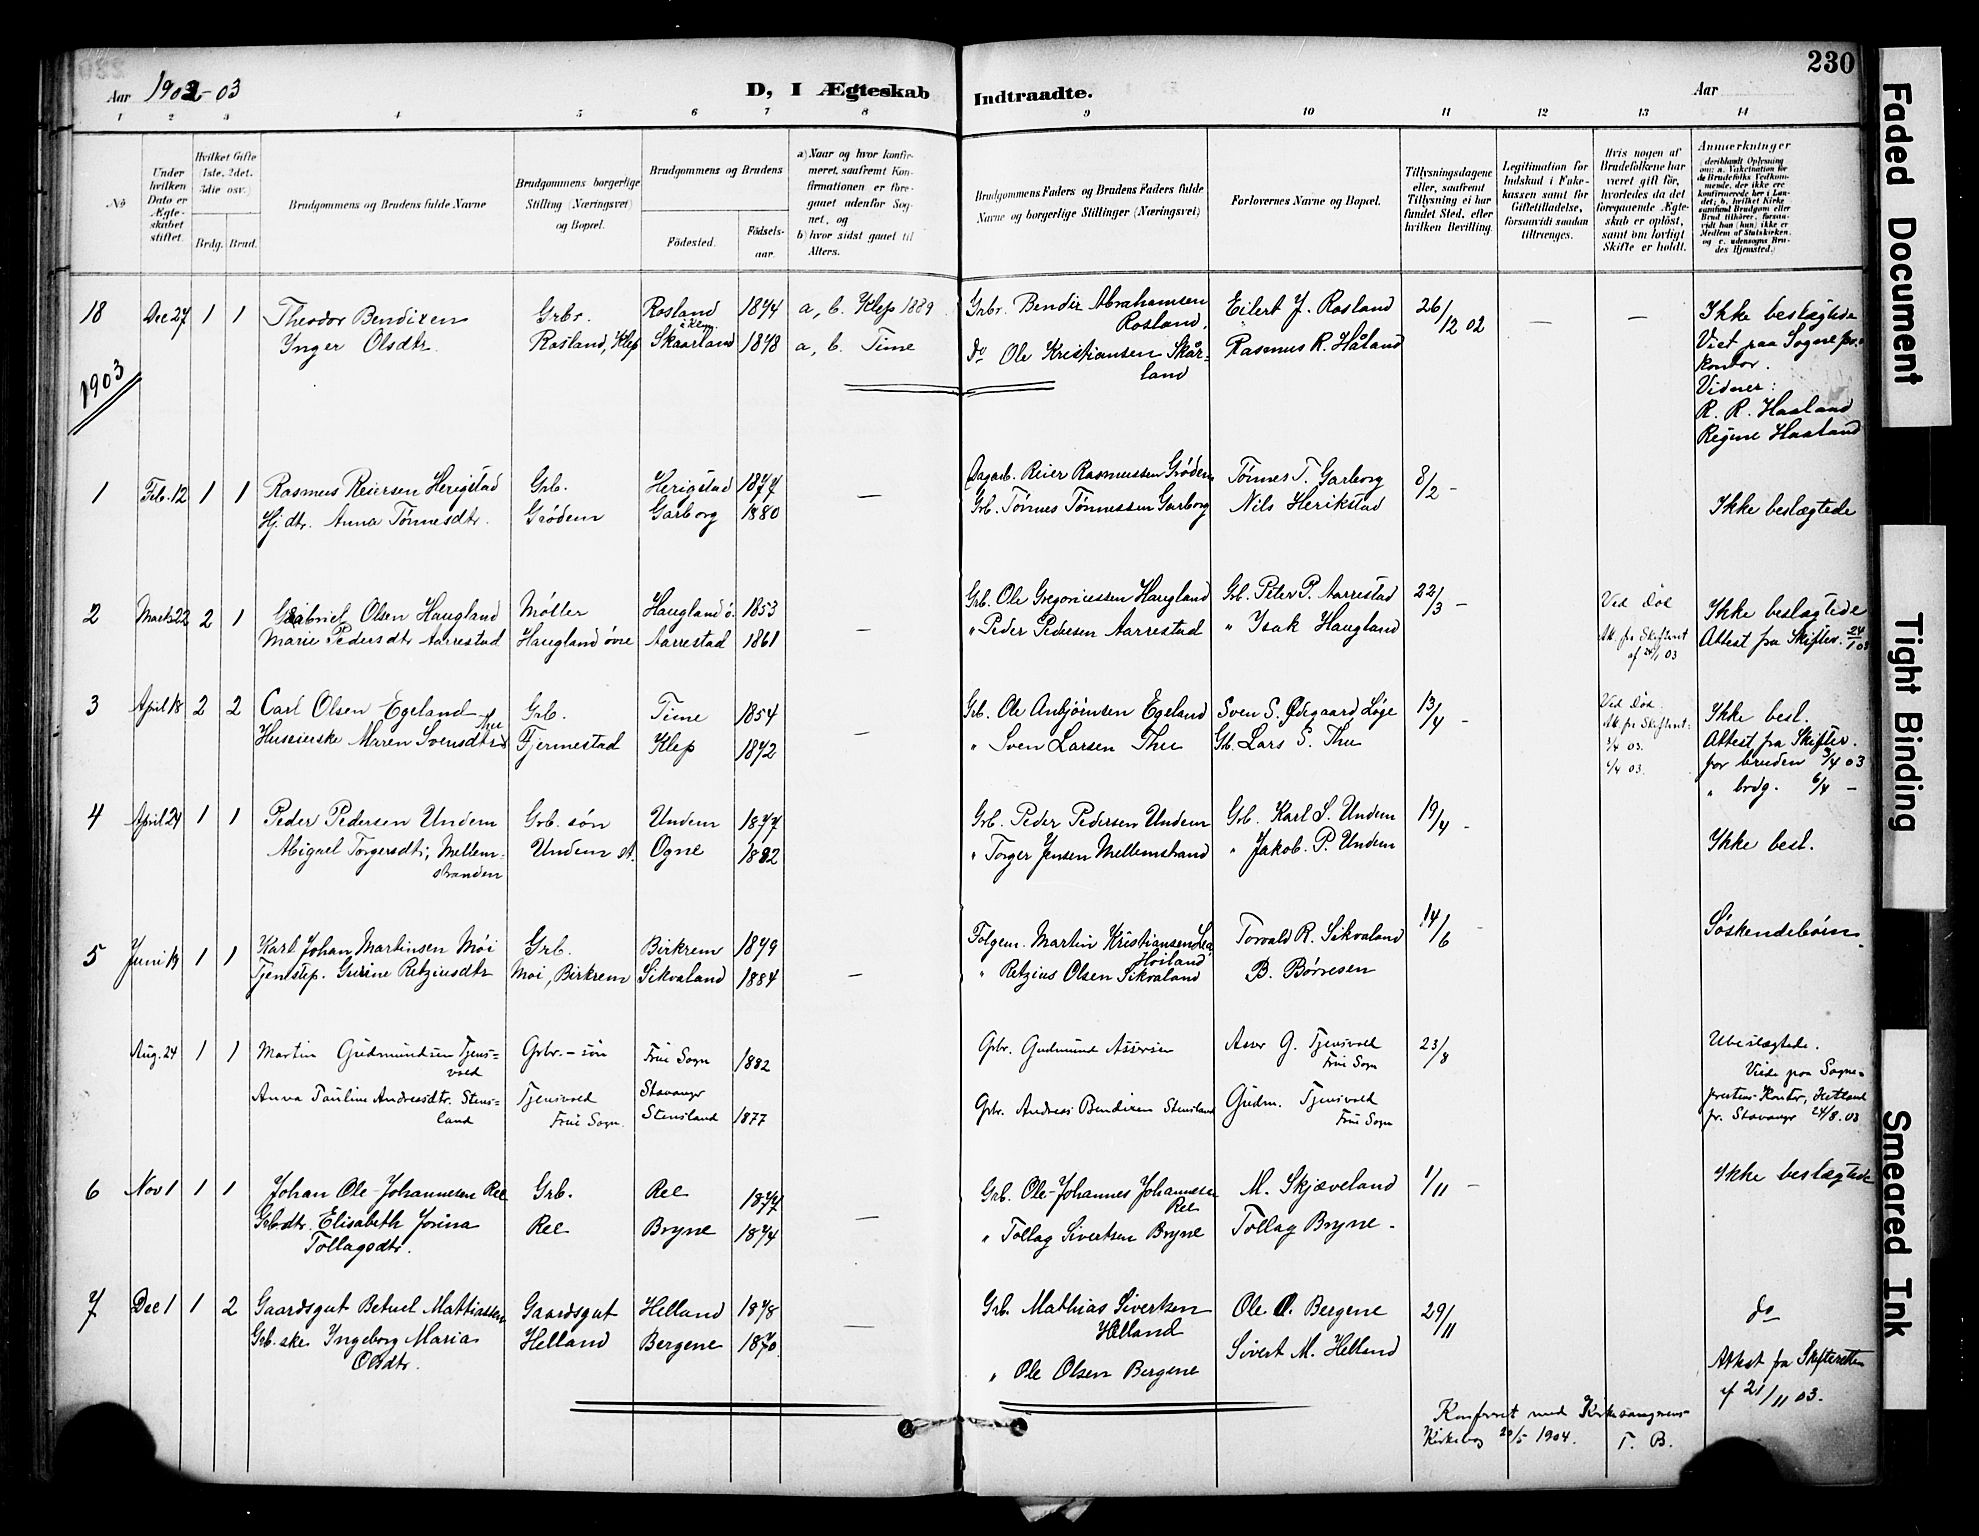 230
Aar 1902-03
D, I Ægteskab Indtraadte.
Aar
1 2 3 4 5 6 7 8 9 10 11 12 13 14
No
Under hvilken Dato er Ægteskabet stiftet.
Hvilket Gifte (1ste, 2det, 3die osv.)
Brdg. Brud.
Brudgommens og Brudens fulde Navne
Brudgommens borgerlige Stilling (Næringsvei) og Bopæl.
Brudgommens og Brudens
Fødested.
Fødselsaar.
a) Naar og hvor konfirmeret, saafremt Konfirmationen er foregaaet udenfor Sognet, og
b) hvor sidst gaaet til Alters.
Brudgommens Faders og Brudens Faders fulde Navne og borgerlige Stillinger (Næringsvei)
Forlovernes Navne og Bopæl.
Tillysningsdagene eller, saafremt Tillysning ei har fundet Sted, efter hvilken Bevilling.
Legitimation for Indskud i Enkekassen samt for Giftetilladelse, forsaavidt saadan tiltrænges.
Hvis nogen af Brudefolkene har været gift før, hvorledes da det foregaaende Ægteskab er opløst, samt om lovligt Skifte er holdt.
Anmærkninger
(deriblandt Oplysning om: a. Vakcination for de Brudefolks Vedkommende, der ikke ere konfirmerede her i Landet; b. hvilket Kirkesamfund Brudgom eller Brud tilhører, forsaavidt han (hun) ikke er Medlem af Statskirken, og c. udensogns Brudes Hjemsted.)
18 Dec 27 1 1 Theodor Bendixen Grbr. Rosland i Klep 1874 a, b. Klep 1889 Grbr. Bendix Abrahamsen Rosland. Eilert J. Rosland 26/12 02 — — Ikke beslægtede
Inger Olsdtr. Rosland, Klep Skaarland 1878 a, b. Time do Ole Kristiansen Skårland Rasmus R. Håland Viet paa Sognepr. kontor.
Vidner:
R. R. Haaland
Regine Haaland
1903
1 Feb. 12 1 1 Rasmus Reiersen Herigstad Grb. Herigstad 1877 — Dagarb. Reier Rasmussen Grødem Tønnes T. Garborg 8/2 -
Hj.dtr. Anna Tønnesdtr. Grødem Garborg 1880 Grb. Tønnes Tønnessen Garborg Nils Herikstad Ikke beslægtede
2 Marts 22 2 1 Gabriel Olsen Haugland Møller Haugland ø. 1853 Grb. Ole Gregoriussen Haugland Grb. Peter P. Aarrestad 22/3 - Ved Død Ikke beslægtede
Marie Pedersdtr Aarrestad Haugland øvre Aarrestad 1861 — " Peder Pedersen Aarrestad " Isak Haugland At. fr Skifteret af 24/1 03 Attest fra Skifter. 24/1 03
3 April 18 2 2 Carl Olsen Egeland Grb. Time 1854 Grb. Ole Anbjørnsen Egeland Sven S. Ødegaard, Løge 13/4 - Ved Død. Ikke besl.
Huseierske Maren Svensdtr Thu Fjermestad Klep 1872 — " Sven Larsen Thu Gb. Lars S. Thu At. fr Skifteret: 3/4 03. 6/4 03. Attest fra Skifter. for bruden 3/4 03
" brdg. 6/4 -
4 April 24 1 1 Peder Pedersen Undem Grb. søn Undem 1877 Grb. Peder Pedersen Undem Grb. Karl S. Undem 19/4 -
Abigael Torgersdtr, Mellemstranden Undem Ogne 1882 " Torger Jensen Mellemstrand " Jakob. P. Undem Ikke besl.
5 Juni 19 1 1 Karl Johan Martinsen Moi Grb. Birkrem 1879 Følgem. Martin Kristiansen Høiland Torvald R. Sikvaland 14/6 - Søskendebørn
Tjenstep. Gurine Retziusdtr Moi, Birkrem Sikvaland 1884 — " Retzius Olsen Sikvaland B. Børresen
Aug. 24 1 1 Martin Gudmundsen Tjensvold Grbr. - søn Frue Sogn Stavanger 1882 Grbr. Gudmund Assersen Asser G. Tjensvold Frue Sogn 23/8 Ubeslægtede.
Anna Pauline Andreasdtr. Stensland Tjensvold Frue Sogn. Stensland 1877 Grbr. Andreas Bendixen Stensland Gudm. Tjensvold Frue Sogn Viede paa Sogneprestens Kontor, Hetland pr. Stavanger 24/8. 03
6 Nov 1 1 1 Johan Ole-Johannesen Ree Grb. Ree 1877 Grb. Ole-Johannes Johannesen Ree M. Skjæveland 1/11 - Ikke beslægtede
Grb.dtr. Elisabeth Jorina Tollagsdtr. Ree Bryne 1874 — " Tollag Sivertsen Bryne Tollag Bryne.
7 Dec 1 1 2 Gaardsgut Betuel Mattiassen Gaardsgut Helland 1878 Grb. Mathias Sivertsen Helland Ole O. Bergene 29/11 do
Grb.ske Ingeborg Maria Olsdtr. Helland Bergene 1870. — " Ole Olsen Bergene Sivert M. Helland Attest fra Skifteretten af 21/11 03.
Konfereret med Kirkesangerens Kirkebog 20/5 1904. T. B.
Faded Document
Tight Binding
Smeared Ink